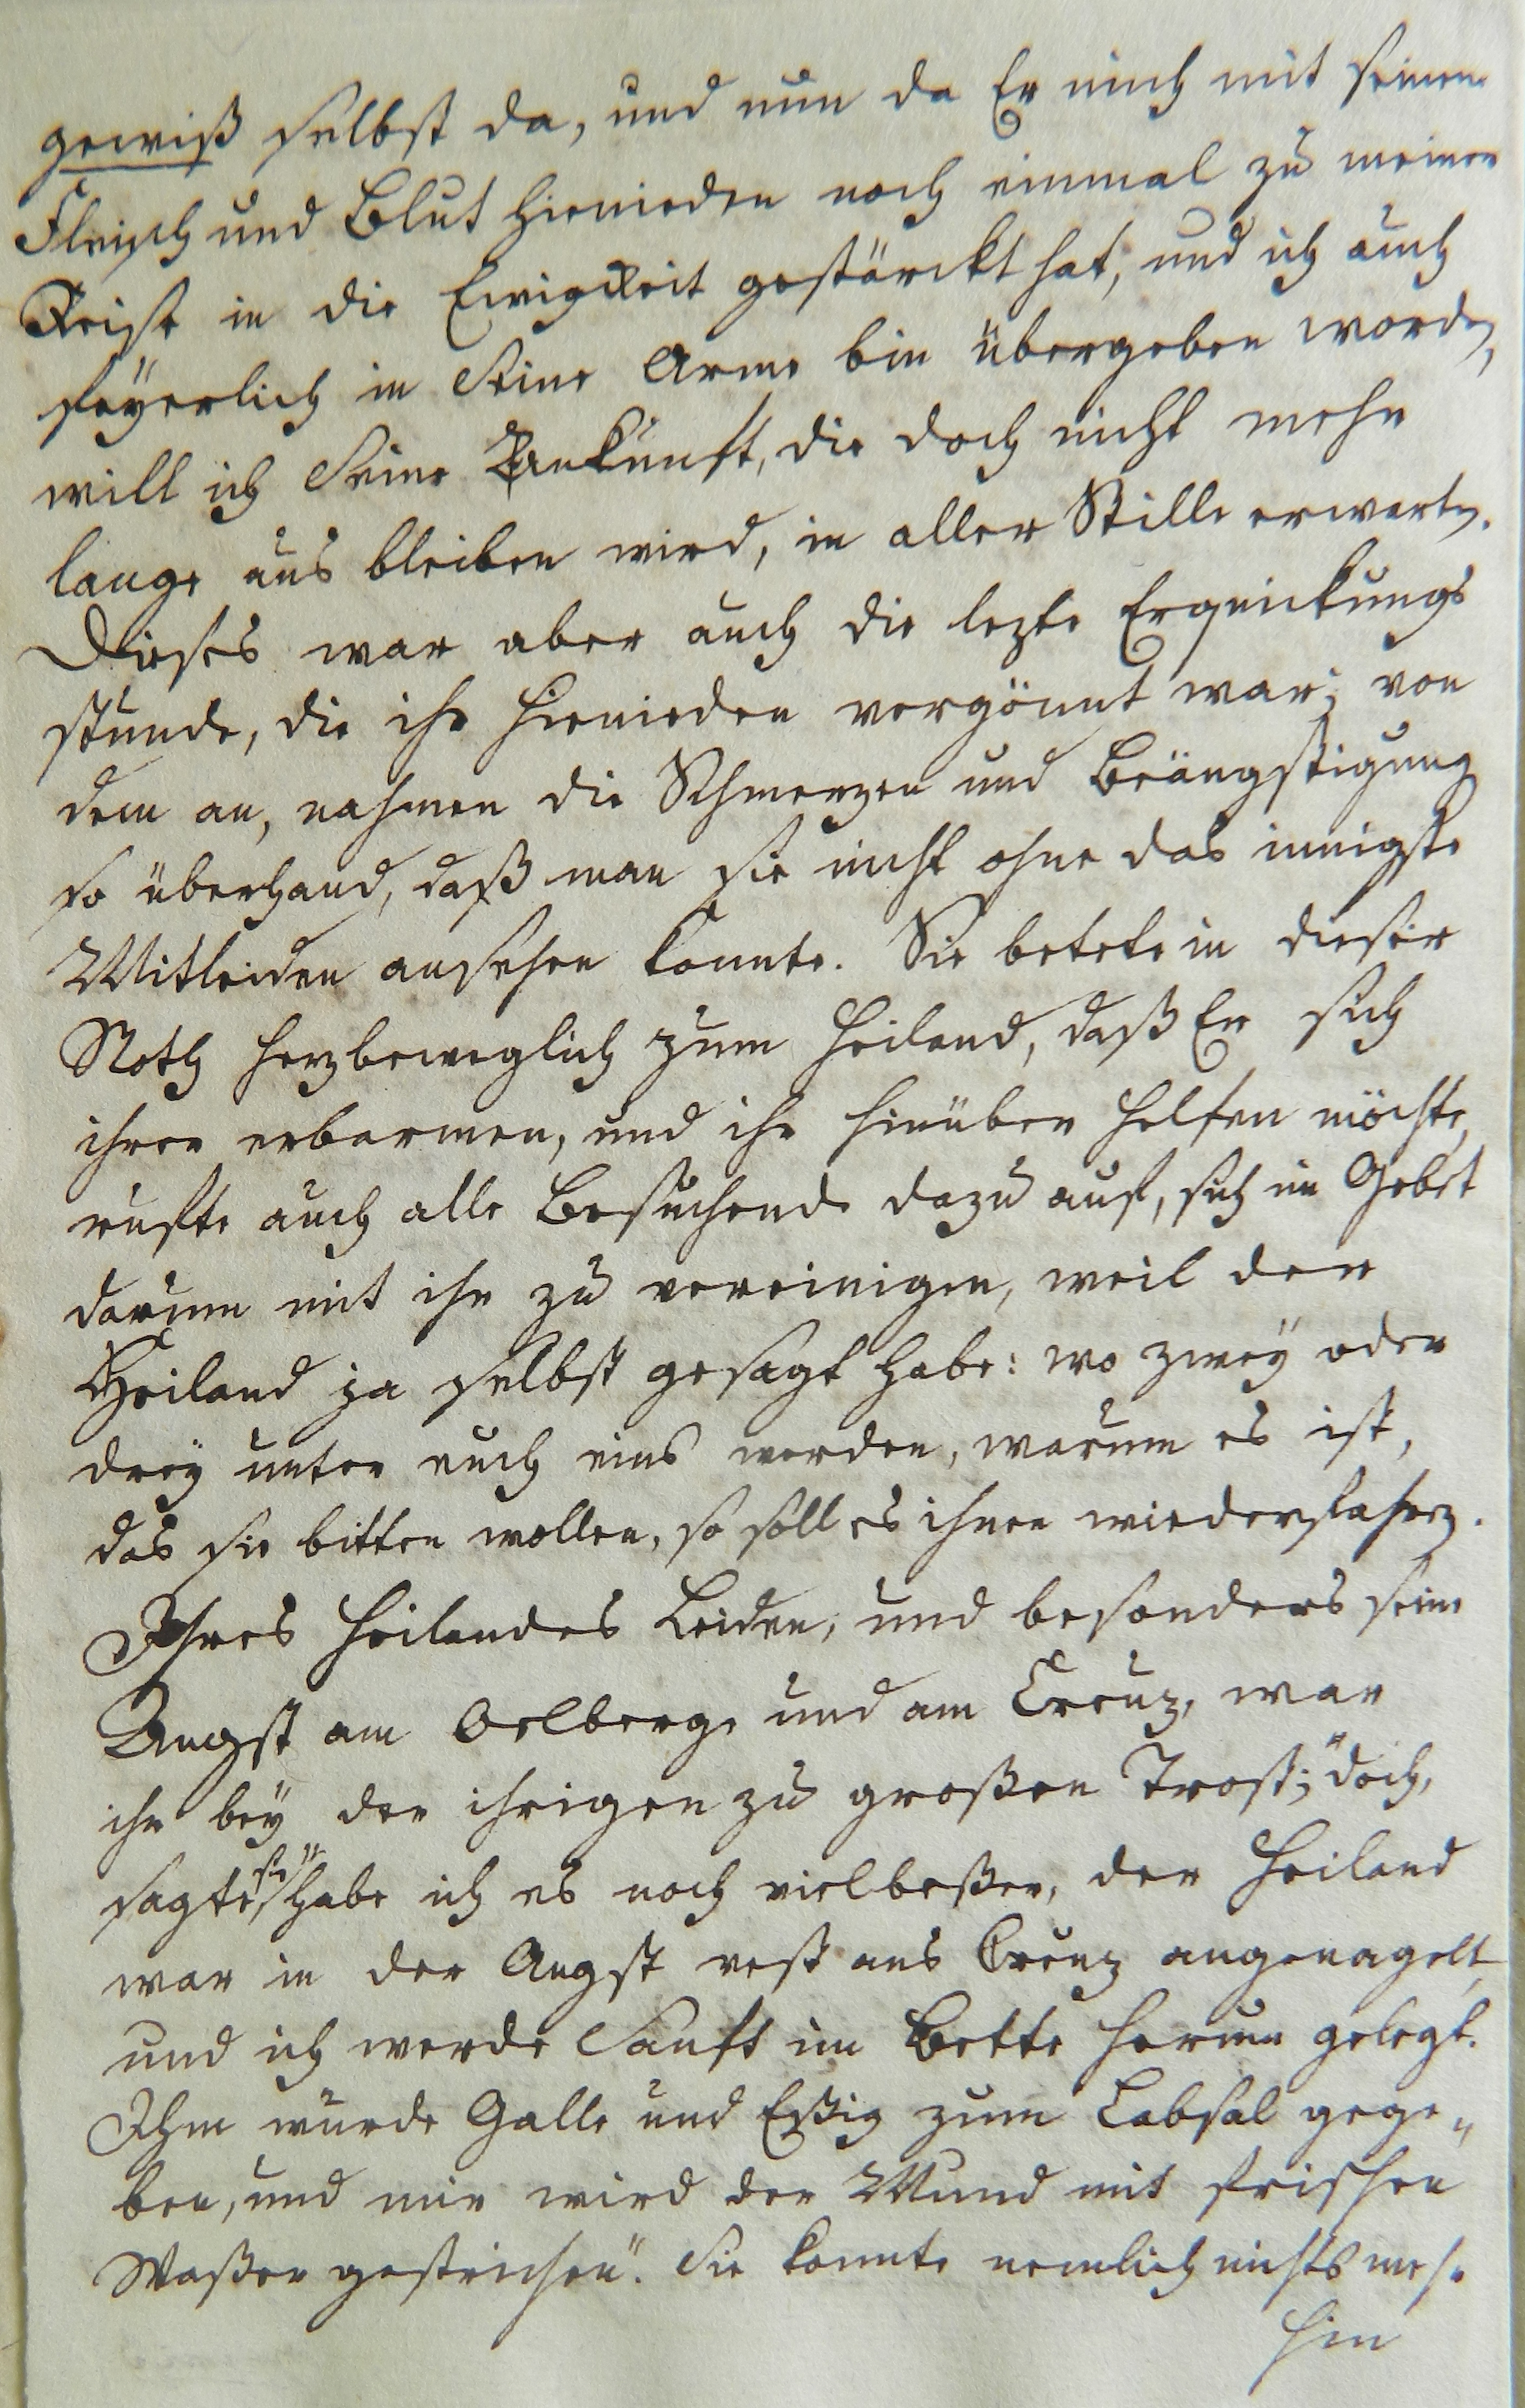 gewiß selbst da, und nun da Er mich mit seinem
Fleisch und Blut hienieden noch einmal zu meiner
Reise in die Ewigkeit gestärckt hat, und ich auch
feyerlich in Seine Arme bin übergeben worden,
will ich Seine Ankunft, die doch nicht mehr
lange aus bleiben wird, in aller Stille erwarten.
Dieses war aber auch die lezte Erquickungs
stunde, die ihr hienieden vergönnt war; von
dem an, nahmen die Schmerzen und Beängstigung
so überhand, daß man sie nicht ohne das innigste
Mitleiden ansehen konnte. Sie betete in dieser
Noth herzbeweglich zum Heiland, daß Er sich
ihrer erbarmen, und ihr hinüber helfen möchte,
rufte auch alle Besuchende dazu auf, sich im Gebet
darum mit ihr zu vereinigen, weil der
Heiland ja selbst gesagt habe: wo zwey oder
drey unter euch eins werden, warum es ist,
das sie bitten wollen, so soll es ihnen wiederfahren.
Ihres Heilandes Leiden, und besonders seine
Angst am Oelberge und am Creuz, war
ihr bey der ihrigen zu großen Trost; "doch,
sagte sie "habe ich es noch viel beßer, der Heiland
war in der Angst vest ans Creuz angenagelt,
und ich werde Sanft im Bette herum gelegt.
Ihm wurde Galle und Eßig zum Labsal gege„
ben, und mir wird der Mund mit frischen
Waßer gestrichen". Sie konnte nemlich nichts mehr
hin